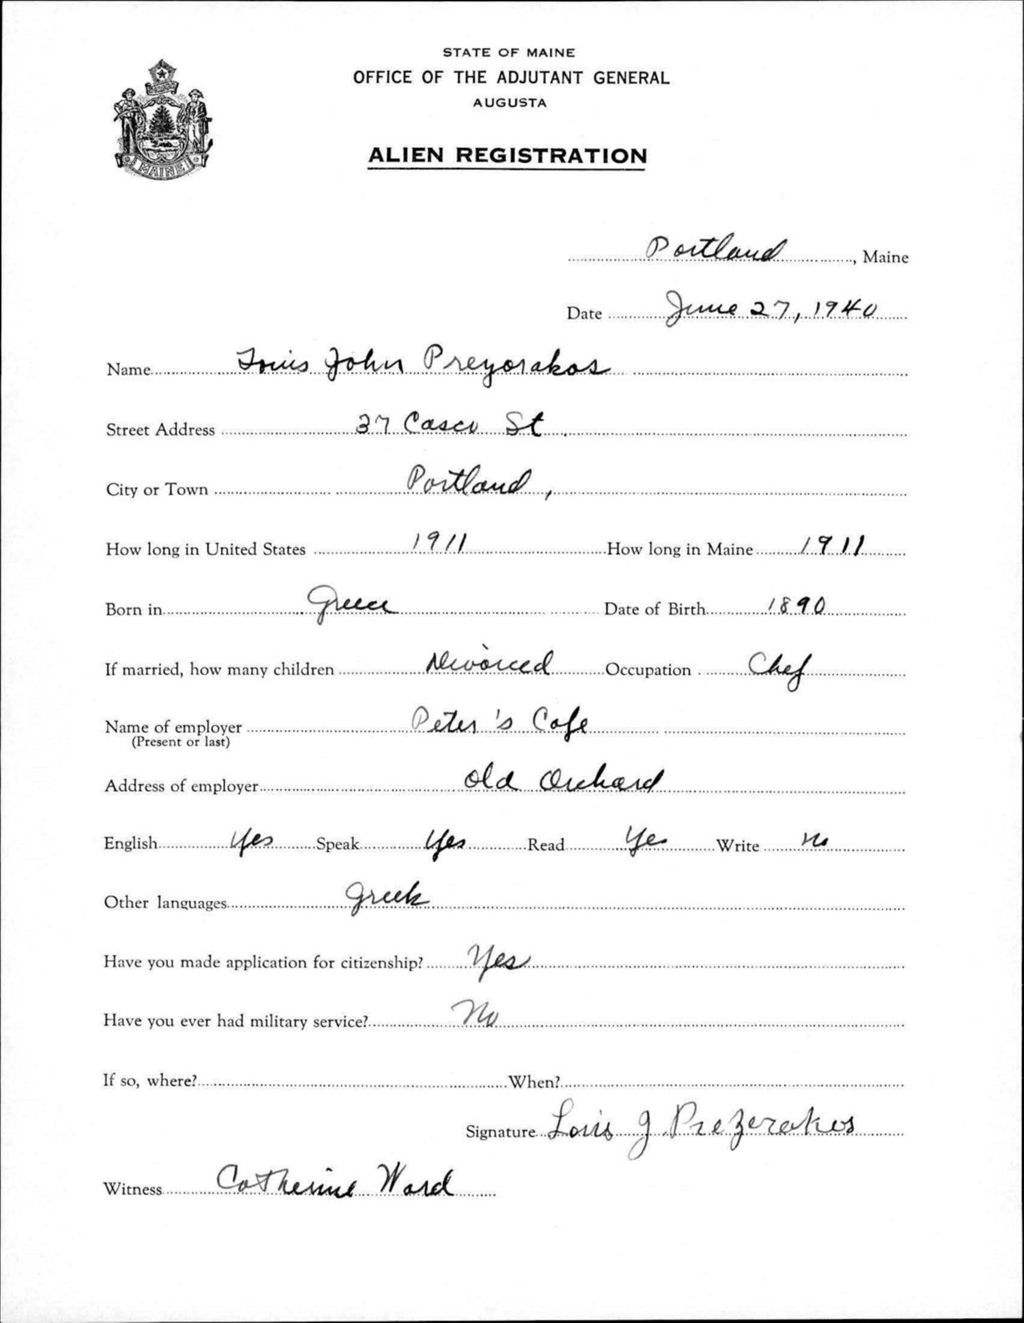 STATE OF MAINE
OFFICE OF THE ADJUTANT GENERAL
AUGUSTA
MAINE
ALIEN REGISTRATION
Portland, Maine
Date June 27, 1940
Name Louis John Preyorakos
Street Address 37 Casco St.
City or Town Portland,
How long in United States 1911 How long in Maine 1911
Born in Greece Date of Birth 1890
If married, how many children Divorced Occupation Chef
Name of employer Peter's Cafe
(Present or last)
Address of employer Old Orchard
English Yes Speak Yes Read Yes Write No
Other languages Greek
Have you made application for citizenship? Yes
Have you ever had military service? No
If so, where? When?
Signature Louis J Prezerakos
Witness Catherine Ward